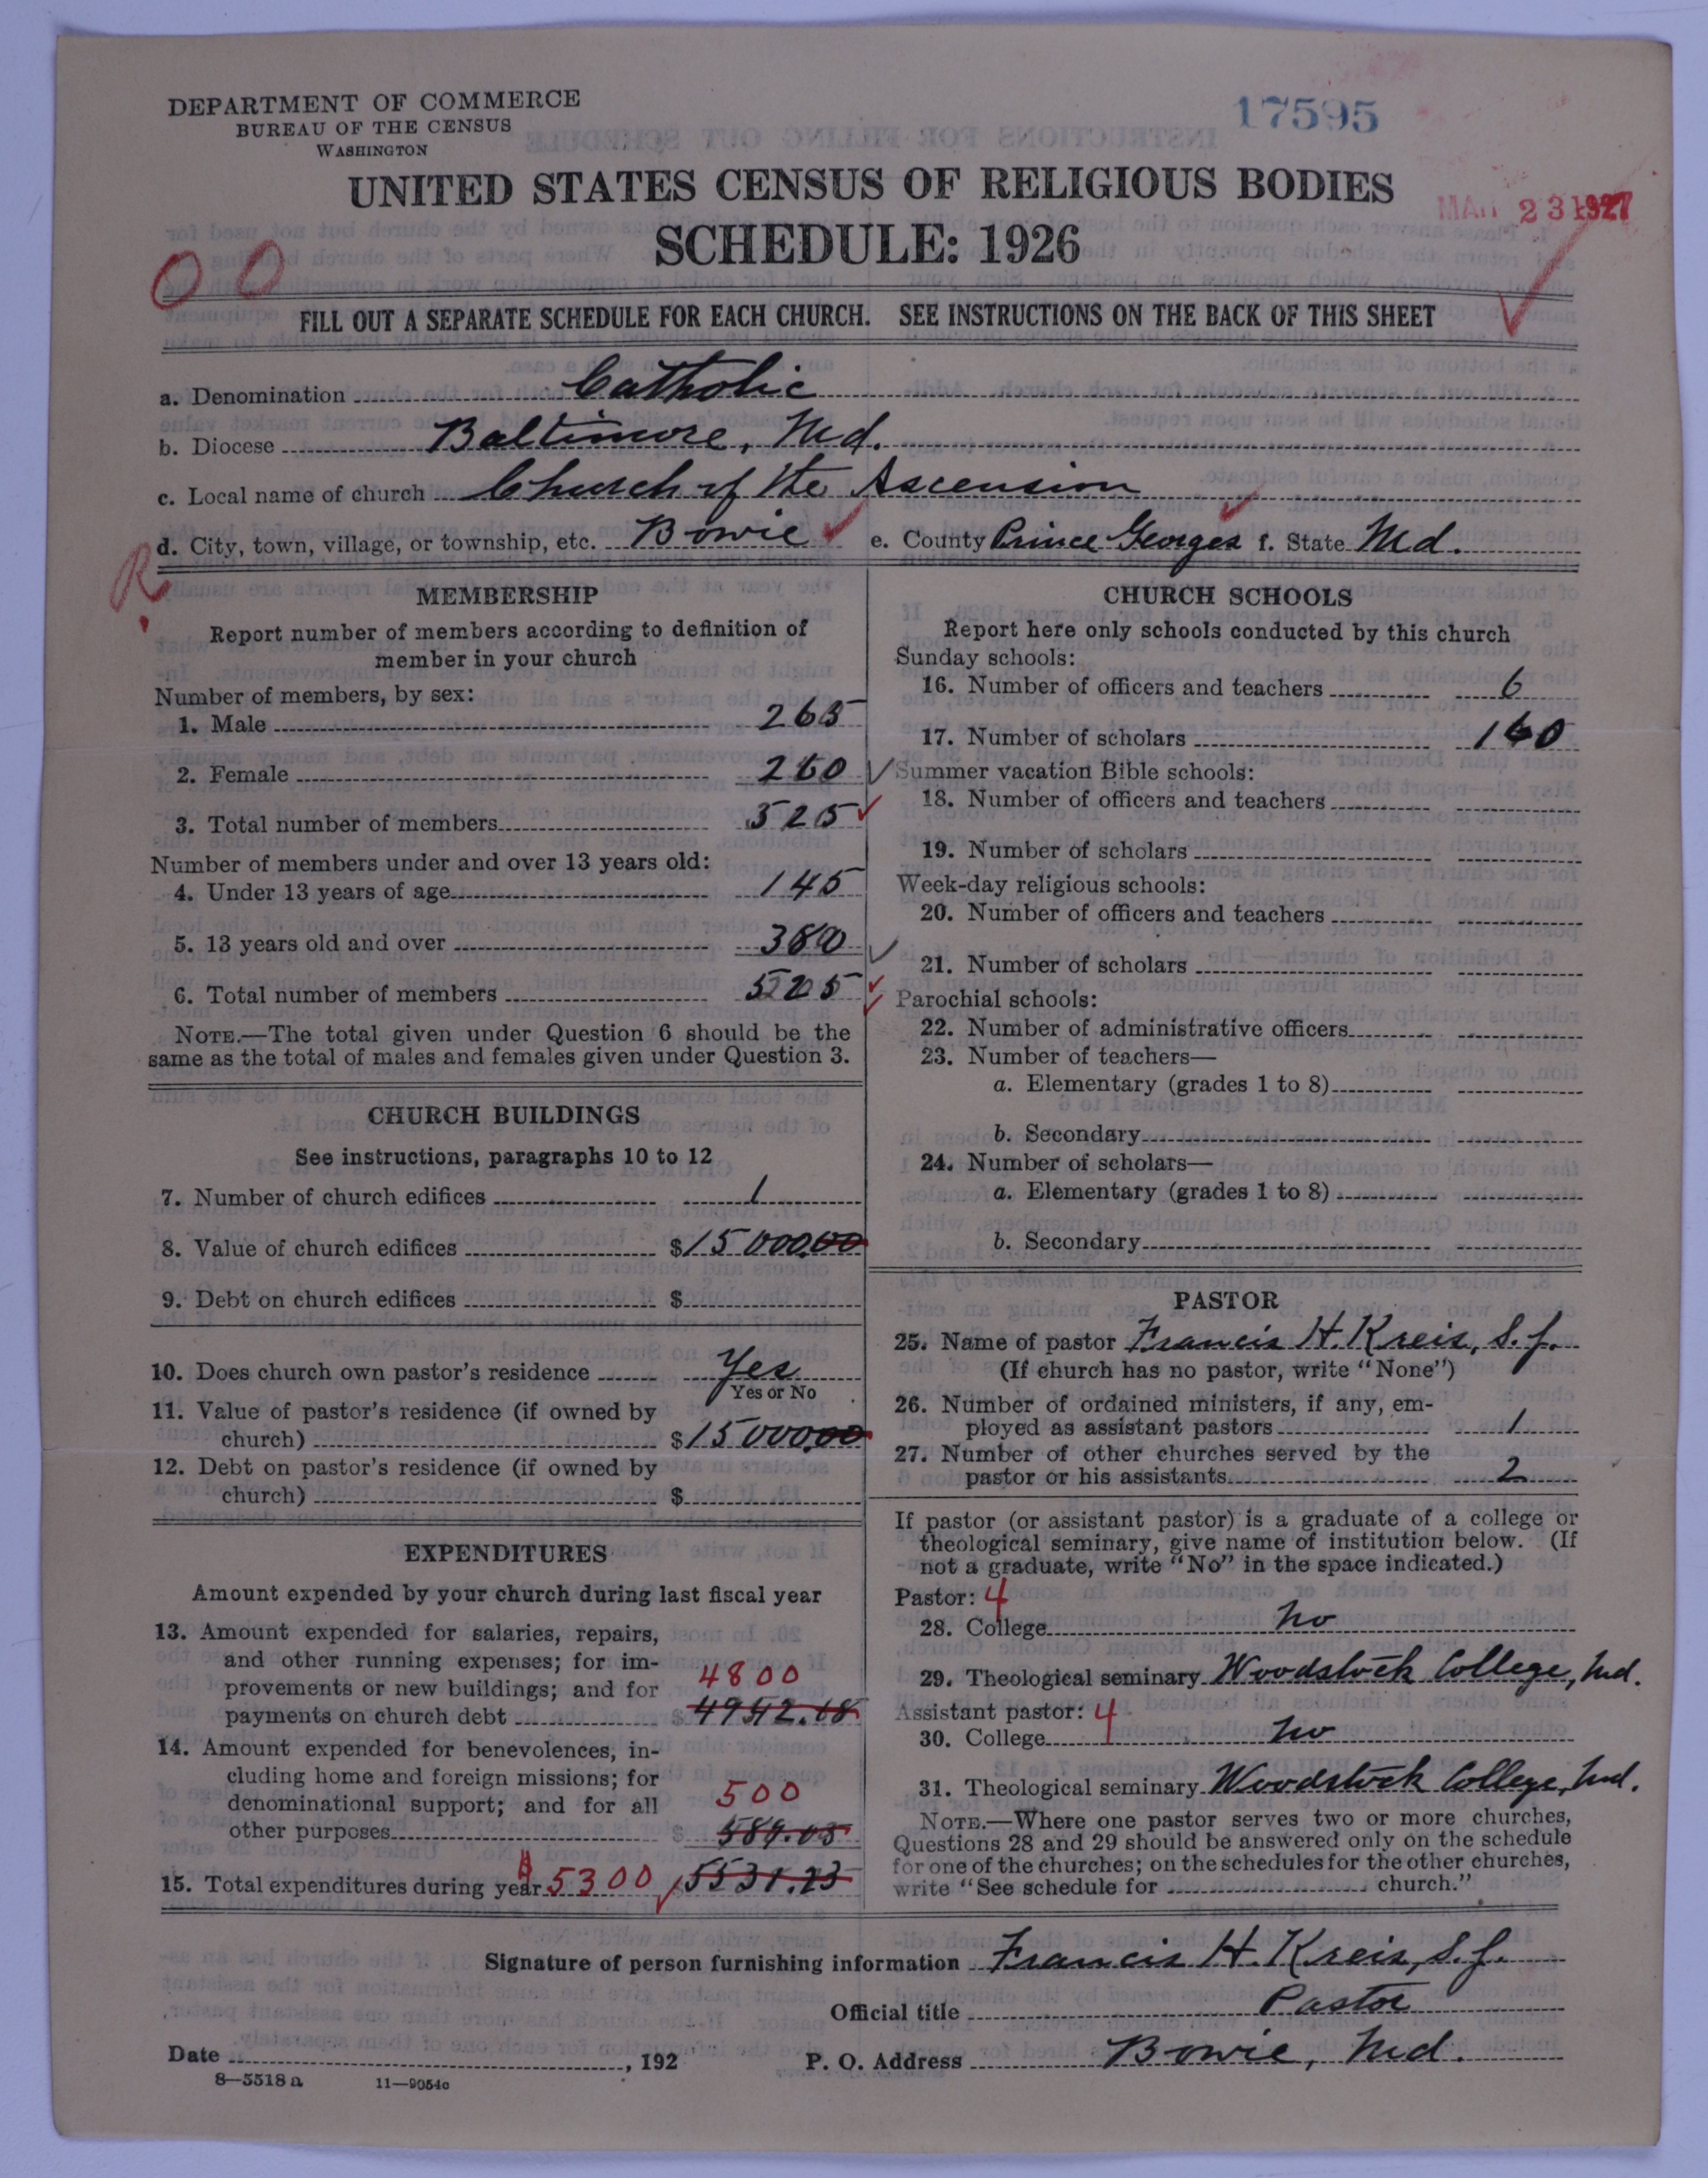 DEPARTMENT OF COMMERCE
BUREAU OF THE CENSUS
WASHINGTON
17595
UNITED STATES CENSUS OF RELIGIOUS BODIES
MAR 23 1927
SCHEDULE: 1926
00
FILL OUT A SEPARATE SCHEDULE FOR EACH CHURCH. SEE INSTRUCTIONS ON THE BACK OF THIS SHEET
a. Denomination Catholic
b. Diocese Baltimore, Md.
c. Local name of church Church of the Ascension
d. City, town, village, or township, etc. Bowie e. County Prince Georges f. State Md.
R.
MEMBERSHIP
Report number of members according to definition of
member in your church
Number of members, by sex:
1. Male 265
2. Female 260
3. Total number of members 525
Number of members under and over 13 years old:
4. Under 13 years of age 145
5. 13 years old and over 380
6. Total number of members 525
NOTE.—The total given under Question 6 should be the
same as the total of males and females given under Question 3.
CHURCH BUILDINGS
See instructions, paragraphs 10 to 12
7. Number of church edifices 1
8. Value of church edifices $15000.00
9. Debt on church edifices $
10. Does church own pastor's residence Yes
Yes or No
11. Value of pastor's residence (if owned by
church) $15000.00
12. Debt on pastor's residence (if owned by
church) $
EXPENDITURES
Amount expended by your church during last fiscal year
13. Amount expended for salaries, repairs,
and other running expenses; for im-
provements or new buildings; and for 4800
payments on church debt $4942.18
14. Amount expended for benevolences, in-
cluding home and foreign missions; for
denominational support; and for all 500
other purposes $589.05
15. Total expenditures during year $5300 $5531.23
CHURCH SCHOOLS
Report here only schools conducted by this church
Sunday schools:
16. Number of officers and teachers 6
17. Number of scholars 160
Summer vacation Bible schools:
18. Number of officers and teachers
19. Number of scholars
Week-day religious schools:
20. Number of officers and teachers
21. Number of scholars
Parochial schools:
22. Number of administrative officers
23. Number of teachers—
a. Elementary (grades 1 to 8)
b. Secondary
24. Number of scholars—
a. Elementary (grades 1 to 8)
b. Secondary
PASTOR
25. Name of pastor Francis H. Kreis, S.J.
(If church has no pastor, write "None")
26. Number of ordained ministers, if any, em-
ployed as assistant pastors 1
27. Number of other churches served by the
pastor or his assistants 2
If pastor (or assistant pastor) is a graduate of a college or
theological seminary, give name of institution below. (If
not a graduate, write "No" in the space indicated.)
Pastor: 4
28. College No
29. Theological seminary Woodstock College, Md.
Assistant pastor: 4
30. College No
31. Theological seminary Woodstock College, Md.
NOTE.—Where one pastor serves two or more churches,
Questions 28 and 29 should be answered only on the schedule
for one of the churches; on the schedules for the other churches,
write "See schedule for church."
Signature of person furnishing information Francis H. Kreis, S.J.
Official title Pastor
Date , 192 P. O. Address Bowie, Md.
8—5518a 11—9054c